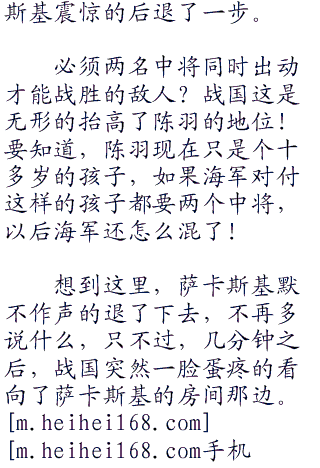 斯基震惊的后退了一步。
必须两名中将同时出动
才能战胜的敌人？战国这是
无形的抬高了陈羽的地位！
要知道，陈羽现在只是个十
多岁的孩子，如果海军对付
这样的孩子都要两个中将，
以后海军还怎么混了！
想到这里，萨卡斯基默
不作声的退了下去，不再多
说什么，只不过，几分钟之
后，战国突然一脸蛋疼的看
向了萨卡斯基的房间那边。
[m.heihei168.com]
[m.heihei168.com手机